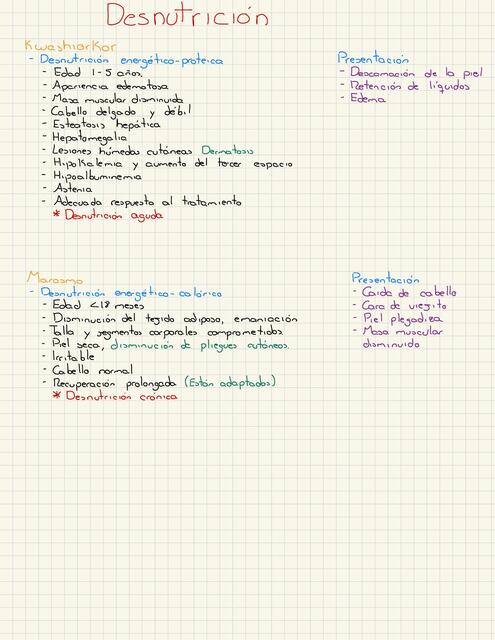 Desnutrición
Kwashiorkor
- Desnutrición energético-proteica
- Edad 1-5 años
- Apariencia edematosa
- Masa muscular disminuida
- Cabello delgado y débil
- Esteatosis hepática
- Hepatomegalia
- Lesiones húmedas cutáneas Dermatosis
- Hipokalemia y aumento del tercer espacio
- Hipoalbuminemia
- Astenia
- Adecuada respuesta al tratamiento
* Desnutrición aguda
Presentación
- Descamación de la piel
- Retención de líquidos
- Edema
Marasmo
- Desnutrición energético-calórica
- Edad <18 meses
- Disminución del tejido adiposo, emanciación
- Talla y segmentos corporales comprometidos.
- Piel seca, disminución de pliegues cutáneos.
- Irritable
- Cabello normal
- Recuperación prolongada (Están adaptados)
* Desnutrición crónica
Presentación
- Caida de cabello
- Cara de viejito
- Piel plegadiza
- Masa muscular
disminuido